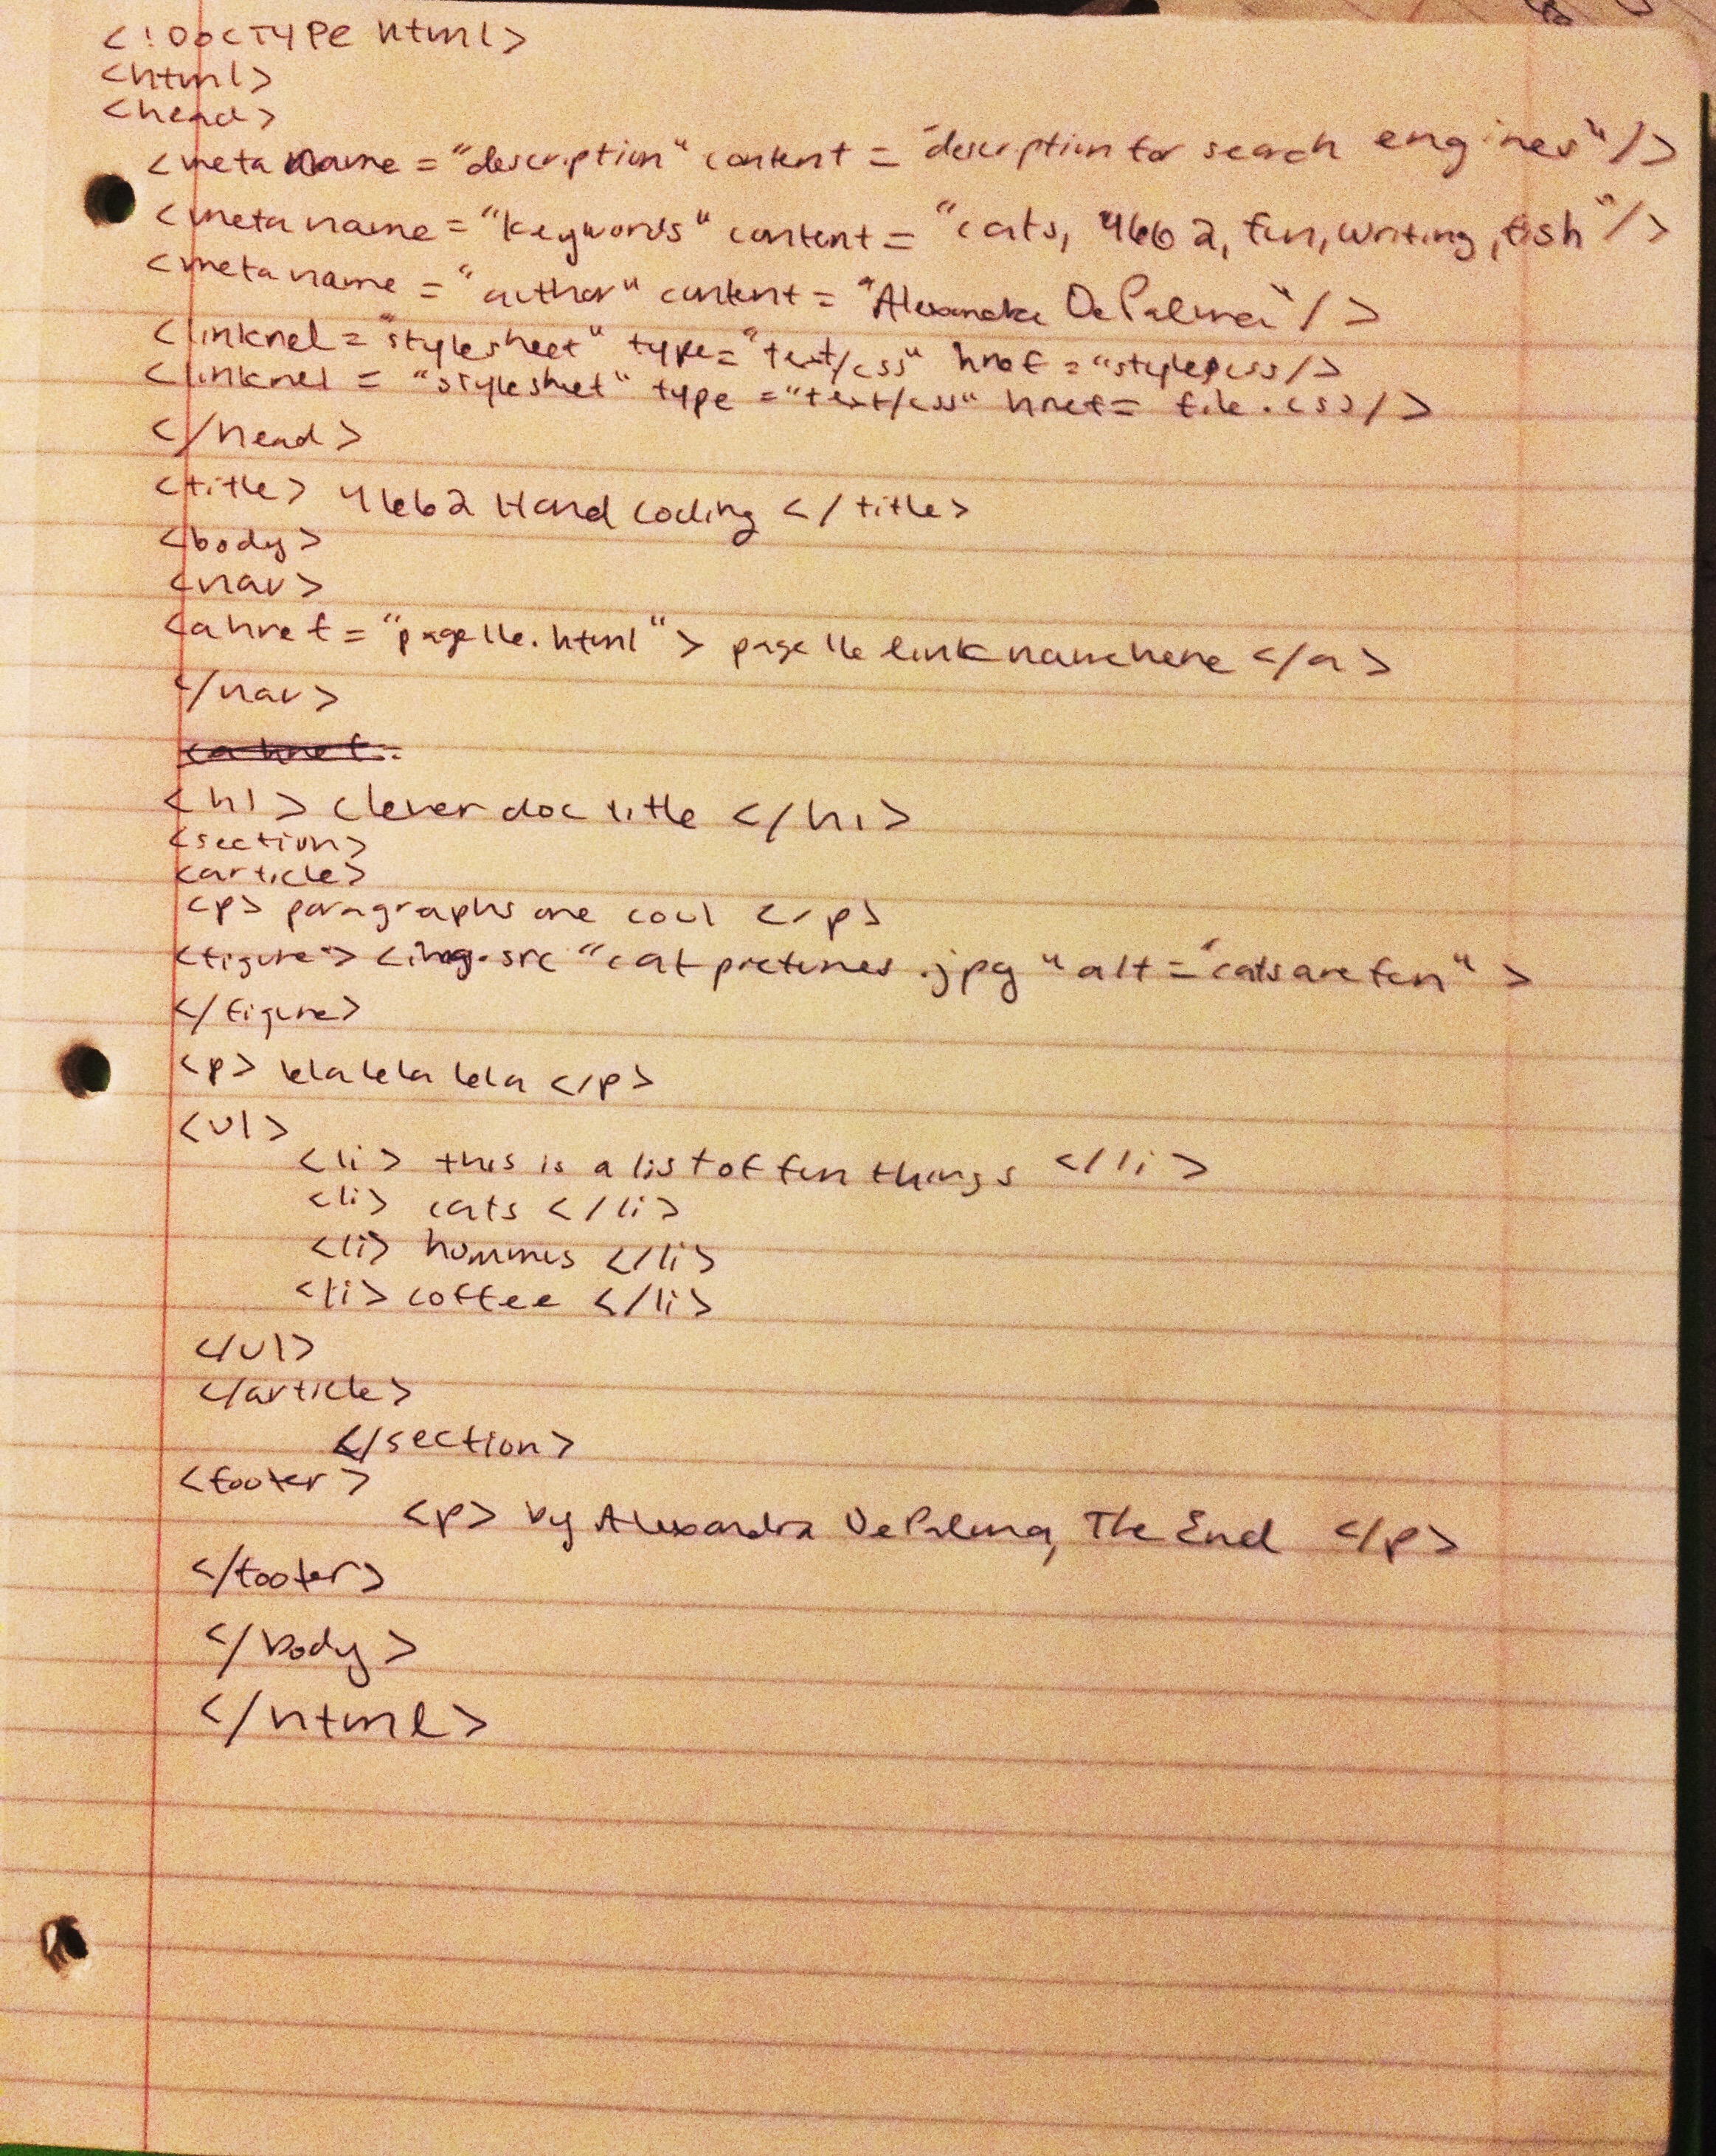 <!DOCTYPE html>
<html>
<head>
<meta name = "description" content = "description for search engines"/>
<meta name = "keywords" content = "cats, 4662, fun, writing, fish"/>
<meta name = "author" content = "Alexandra DePalma"/>
<link rel = "stylesheet" type = "text/css" href = "style.css/>
<link rel = "stylesheet" type = "text/css" href = file.css/>
</head>
<title> 4662 Hand Coding </title>
<body>
<nav>
<a href = "page lle.html"> page lle link name here </a>
</nav>
<a href
<h1> clever doc title </h1>
<section>
<article>
<p> paragraphs are cool </p>
<figure> <img src "cat pictures.jpg" alt = "cats are fun" >
</figure>
<p> blablabla </p>
<ul>
<li> this is a list of fun things </li>
<li> cats </li>
<li> hummus </li>
<li> coffee </li>
</ul>
</article>
</section>
<footer>
<p> by Alexandra DePalma, The End </p>
</footer>
</body>
</html>